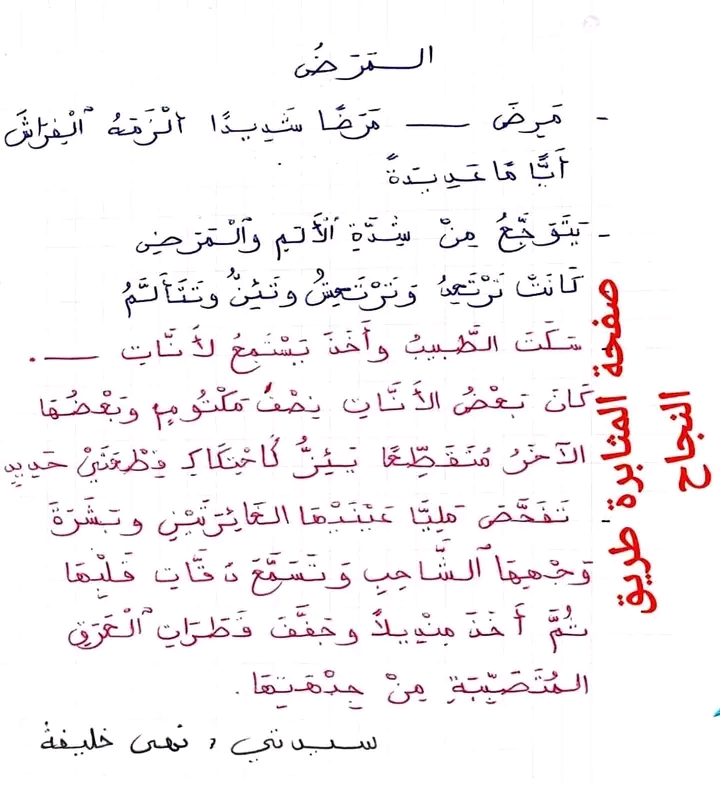 المَرَضُ
- مَرِضَ ـــــ مَرَضًا شَدِيدًا أَلْزَمَهُ الْفِرَاشَ
أَيَّامًا عَدِيدَةً
- يَتَوَجَّعُ مِنْ شِدَّةِ الأَلَمِ والْمَرَضِ
كَانَتْ تَرْتَعِدُ وَتَرْتَعِشُ وتَئِنُّ وتَتَأَلَّمُ
سَكَتَ الطَّبِيبُ وأَخَذَ يَسْتَمِعُ لأَنَّاتِ ـــــ .
كَانَ بَعْضُ الأَنَّاتِ نِصْفَ مَكْتُومٍ وَبَعْضُهَا
الآخَرُ مُتَقَطِّعًا يَئِزُّ كَاحْتِكَاكِ قِطْعَتَيْ حَدِيدٍ
- تَفَحَّصَ مَلِيًّا عَيْنَيْهَا الغَائِرَتَيْنِ وبَشَرَةَ
وَجْهِهَا الشَّاحِبِ وَتَسَمَّعَ دَقَّاتِ قَلْبِهَا
ثُمَّ أَخَذَ مِنْدِيلاً وجَفَّفَ قَطَرَاتِ الْعَرَقِ
المُتَصَبِّبَةِ مِنْ جِبْهَتِهَا .
سيدتي , نهى خليفة
صفحة المثابرة طريق
النجاح